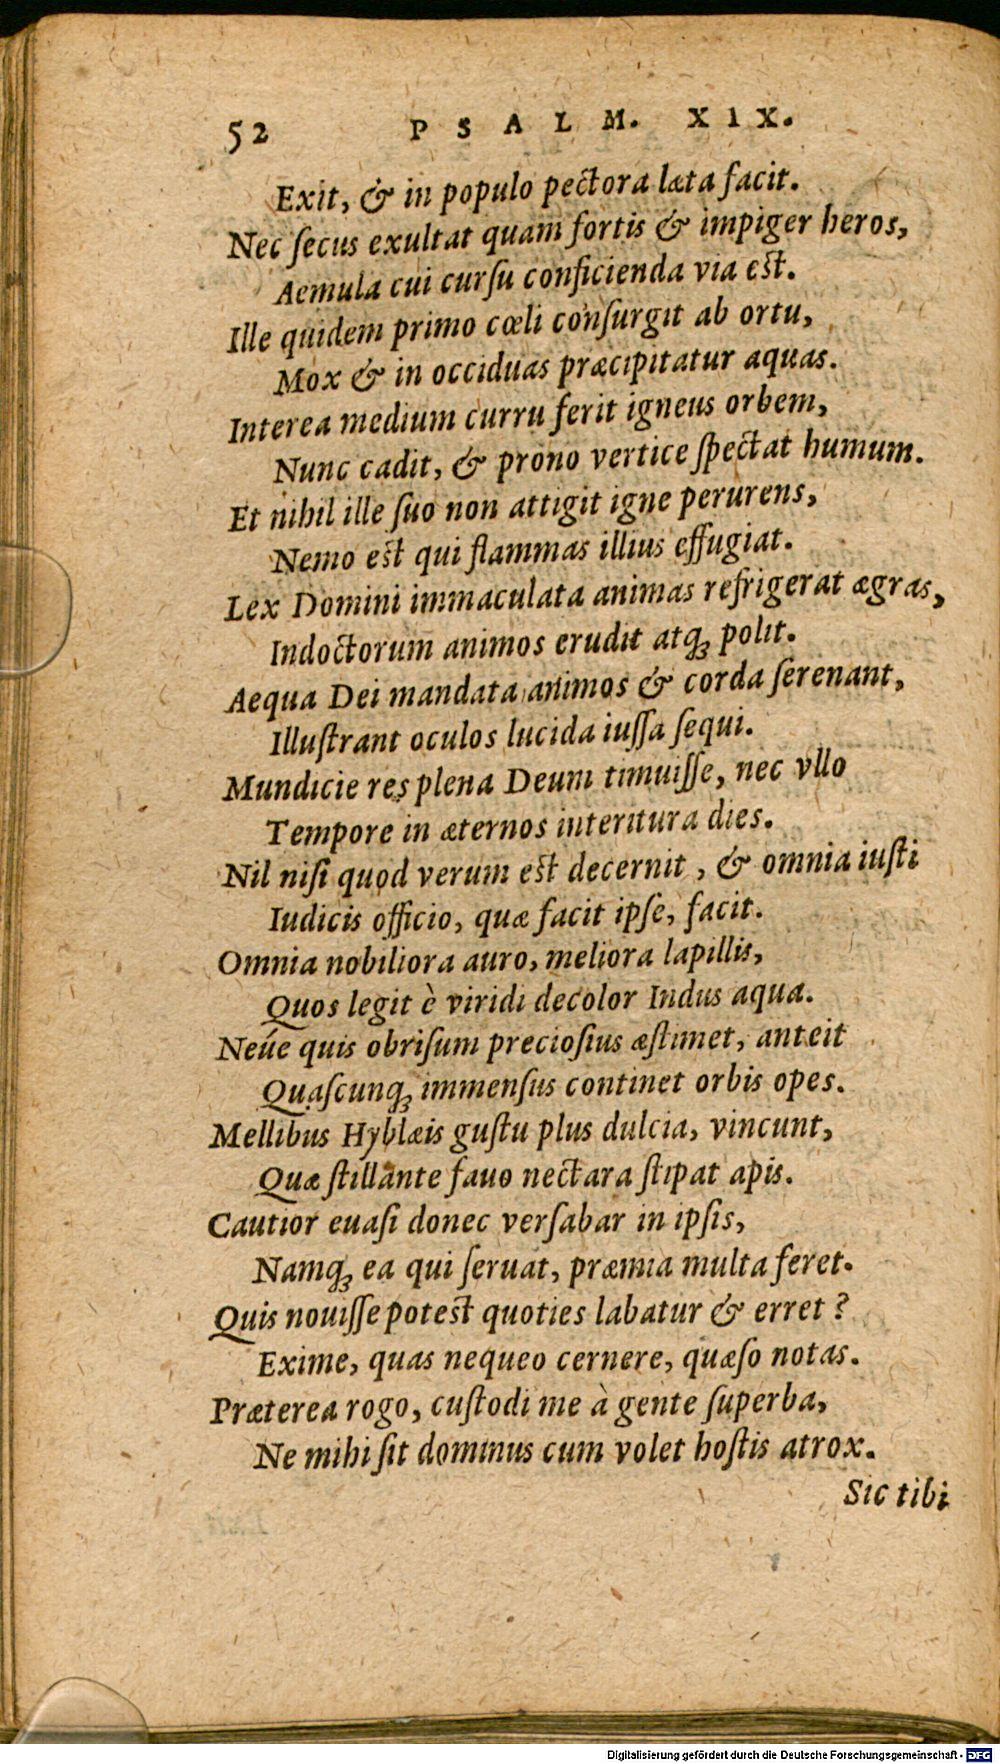 52 PSALM. XIX.
Exit, & in populo pectora læta facit.
Nec ſecus exultat quam fortis & impiger heros,
Aemula cui curſu conficienda via est.
Ille quidem primo cœli conſurgit ab ortu,
Mox & in occiduas præcipitatur aquas.
Interea medium curru ferit igneus orbem,
Nunc cadit, & prono vertice ſpectat humum.
Et nihil ille ſuo non attigit igne perurens,
Nemo est qui flammas illius effugiat.
Lex Domini immaculata animas refrigerat ægras,
Indoctorum animos erudit atqꝫ polit.
Aequa Dei mandata animos & corda ſerenant,
Illuſtrant oculos lucida iuſſa ſequi.
Mundicie res plena Deum timuiſſe, nec vllo
Tempore in æternos interitura dies.
Nil niſi quod verum est decernit, & omnia iuſti
Iudicis officio, quæ facit ipſe, facit.
Omnia nobiliora auro, meliora lapillis,
Quos legit è viridi decolor Indus aqua.
Neúe quis obriſum precioſius æſtimet, anteit
Quaſcunqꝫ immenſus continet orbis opes.
Mellibus Hyblæis guſtu plus dulcia, vincunt,
Quæ ſtillante fauo nectara ſtipat apis.
Cautior euaſi donec verſabar in ipſis,
Namqꝫ ea qui ſeruat, præmia multa feret.
Quis nouiſſe potest quoties labatur & erret?
Exime, quas nequeo cernere, quæſo notas.
Præterea rogo, cuſtodi me à gente ſuperba,
Ne mihi ſit dominus cum volet hoſtis atrox.
Sic tibi
Digitalisierung gefördert durch die Deutsche Forschungsgemeinschaft - DFG